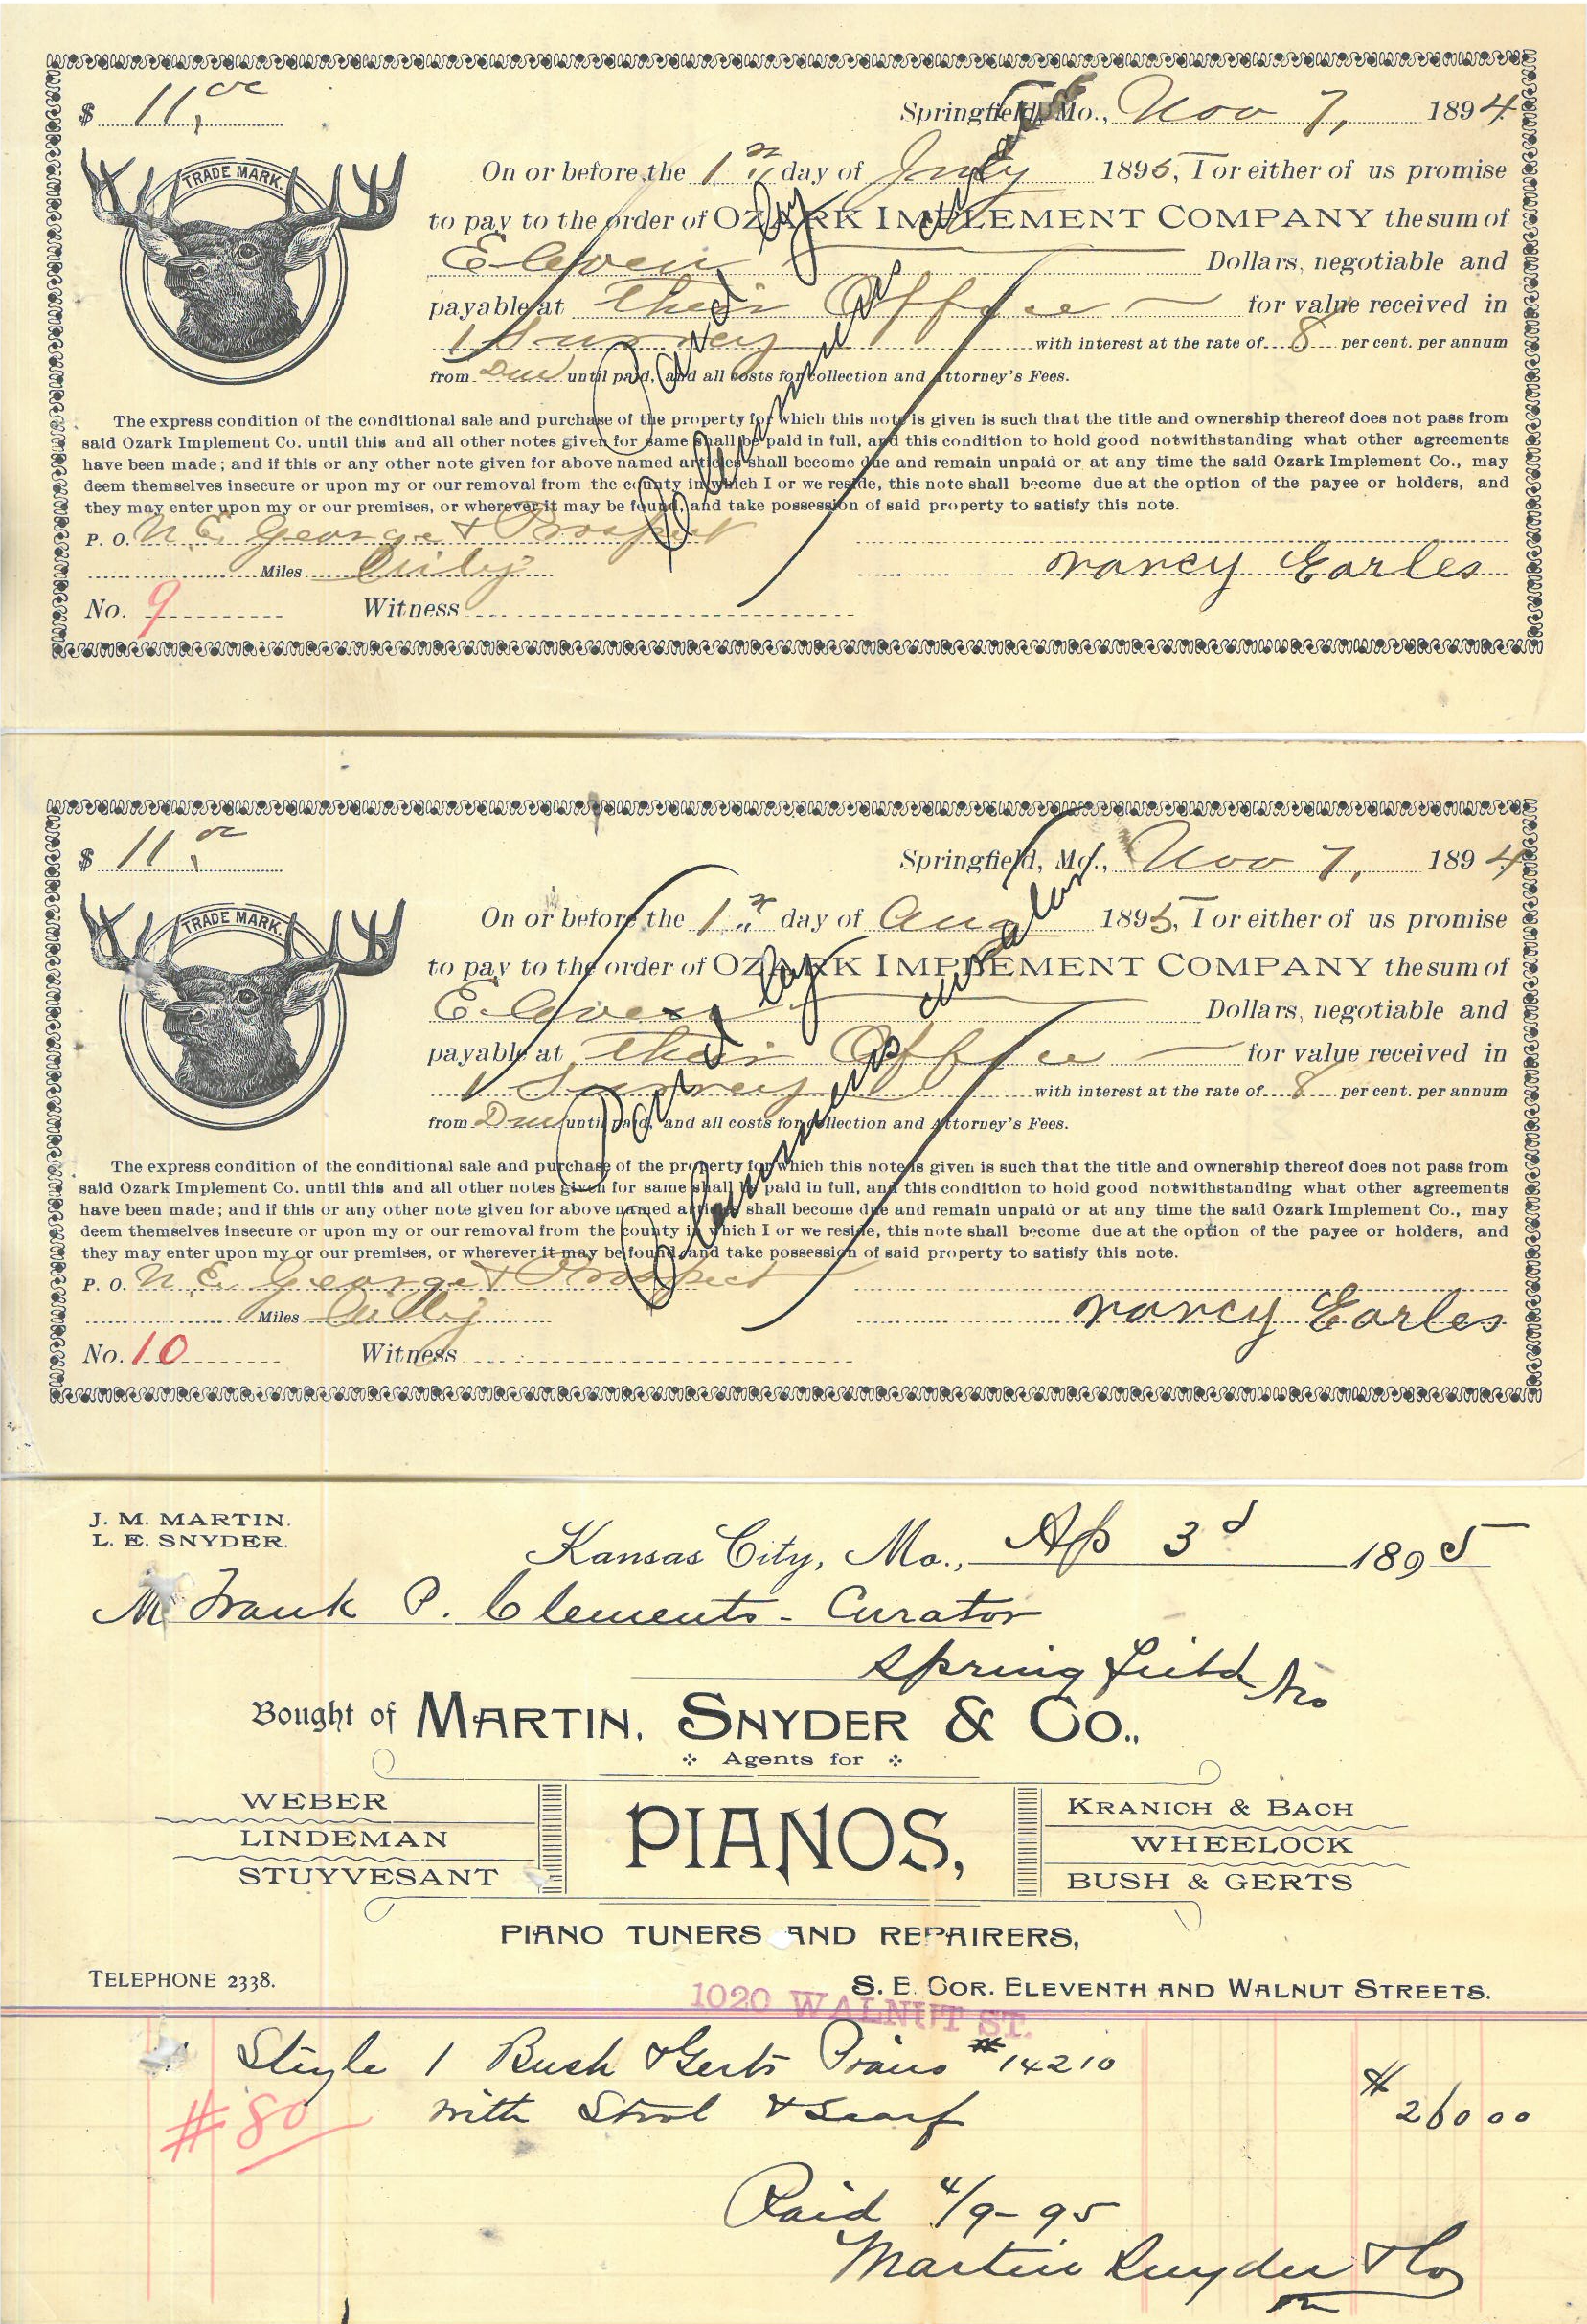 $ 11,00 Springfield, Mo., Nov 7, 1894
TRADE MARK.
On or before the 1st day of July 1895, I or either of us promise
to pay to the order of OZARK IMPLEMENT COMPANY the sum of
Eleven Dollars, negotiable and
payable at their Office for value received in
1 Surrey with interest at the rate of 8 per cent. per annum
from Due until paid, and all costs for collection and Attorney's Fees.
Paid by
Clements curator
The express condition of the conditional sale and purchase of the property for which this note is given is such that the title and ownership thereof does not pass from
said Ozark Implement Co. until this and all other notes given for same shall be paid in full, and this condition to hold good notwithstanding what other agreements
have been made; and if this or any other note given for above named articles shall become due and remain unpaid or at any time the said Ozark Implement Co., may
deem themselves insecure or upon my or our removal from the county in which I or we reside, this note shall become due at the option of the payee or holders, and
they may enter upon my or our premises, or wherever it may be found, and take possession of said property to satisfy this note.
P. O. N. E. George & Prospect
Miles City Nancy Earles
No. 9 Witness
$ 11.00 Springfield, Mo., Nov 7, 1894
TRADE MARK.
On or before the 1st day of Aug 1895, I or either of us promise
to pay to the order of OZARK IMPLEMENT COMPANY the sum of
Eleven Dollars, negotiable and
payable at their Office for value received in
1 Surrey with interest at the rate of 8 per cent. per annum
from Due until paid, and all costs for collection and Attorney's Fees.
Paid by
Clements curator
The express condition of the conditional sale and purchase of the property for which this note is given is such that the title and ownership thereof does not pass from
said Ozark Implement Co. until this and all other notes given for same shall be paid in full, and this condition to hold good notwithstanding what other agreements
have been made; and if this or any other note given for above named articles shall become due and remain unpaid or at any time the said Ozark Implement Co., may
deem themselves insecure or upon my or our removal from the county in which I or we reside, this note shall become due at the option of the payee or holders, and
they may enter upon my or our premises, or wherever it may be found, and take possession of said property to satisfy this note.
P. O. N. E. George & Prospect
Miles City Nancy Earles
No. 10 Witness
J. M. MARTIN.
L. E. SNYDER.
Kansas City, Mo., Ap 3d 1895
M Frank P. Clements - Curator
Springfield Mo
Bought of MARTIN, SNYDER & CO.,
Agents for
WEBER
LINDEMAN
STUYVESANT
PIANOS,
KRANICH & BACH
WHEELOCK
BUSH & GERTS
PIANO TUNERS AND REPAIRERS,
TELEPHONE 2338. S. E. COR. ELEVENTH AND WALNUT STREETS.
1020 WALNUT ST.
Style 1 Bush & Gerts Piano #14210
with Stool & Scarf $260 00
#80
Paid 4/9-95
Martin Snyder & Co